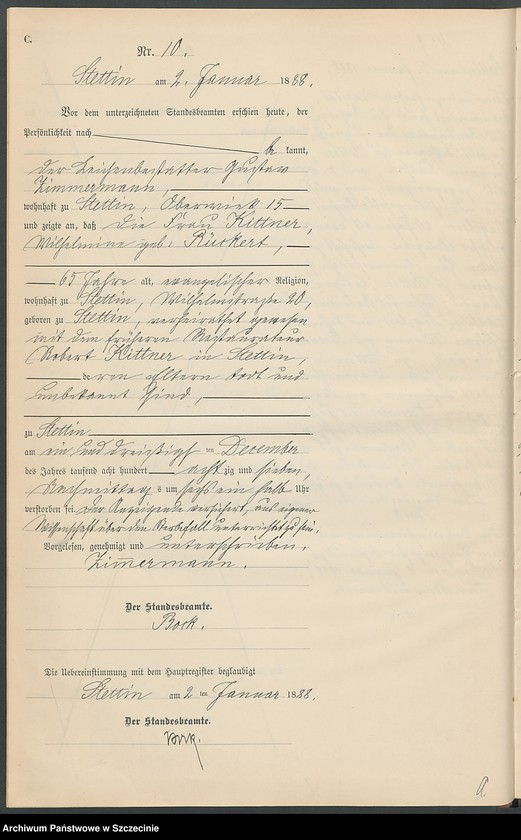 C.
Nr. 10.
Stettin am 2. Januar 1888.
Vor dem unterzeichneten Standesbeamten erschien heute, der
Persönlichkeit nach
be kannt,
der Leichenbestatter Gustav
Zimmermann,
wohnhaft zu Stettin, Oberwiek 15
und zeigte an, daß die Frau Kittner,
Wilhelmine geb. Rückert,
65 Jahre alt, evangelischer Religion,
wohnhaft zu Stettin, Wilhelmstraße 20,
geboren zu Stettin, verheirathet gewesen
mit dem früheren Restaurateur
Robert Kittner in Stettin,
deren Eltern todt und
unbekannt sind,
zu Stettin
am ein und dreißigsten December
des Jahres tausend acht hundert acht zig und sieben,
Nachmittags um sechs ein halb Uhr
verstorben sei. Der Anzeigende versichert, aus eigener
Wissenschaft über den Sterbfall unterrichtet zu sein.
Vorgelesen, genehmigt und unterschrieben.
Zimmermann.
Der Standesbeamte.
Bock.
Die Uebereinstimmung mit dem Hauptregister beglaubigt
Stettin am 2 ten Januar 1888.
Der Standesbeamte.
Bock.
Archiwum Państwowe w Szczecinie